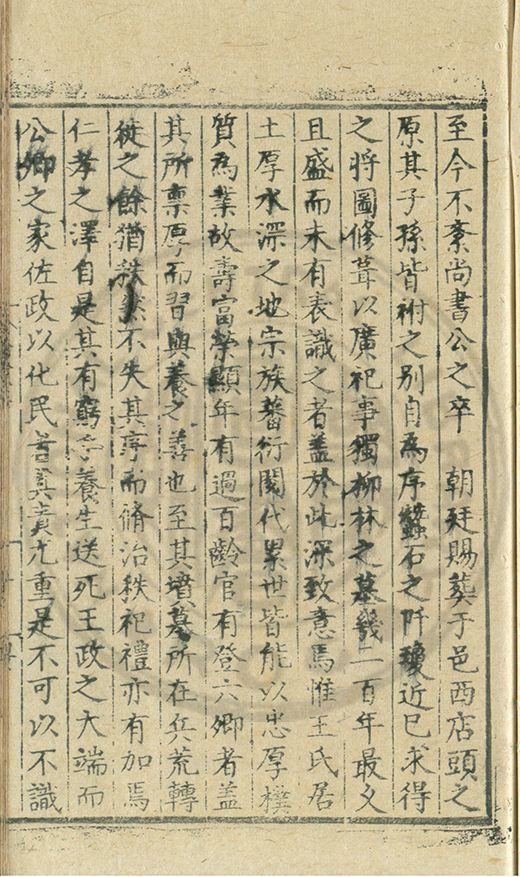 至今不紊尚書公之卒　朝廷賜葬于邑西店頭之
原其子孫皆祔之別自為序蠶石之阡瓊近已求得
之將圖修葺以廣祀事獨柳林之墓幾二百年最久
且盛而未有表識之者盖於此深致意焉惟王氏居
土厚水深之地宗族蕃衍閱代累世皆能以忠厚樸
質為業故壽富榮顯年有過百齡官有登六卿者盖
其所禀厚而習與養之善也至其墳墓所在兵荒轉
徙之餘猶秩然不失其序而脩治秩祀禮亦有加焉
仁孝之澤自是其有窮乎養生送死王政之大端而
公卿之家佐政以化民者其責尤重是不可以不識